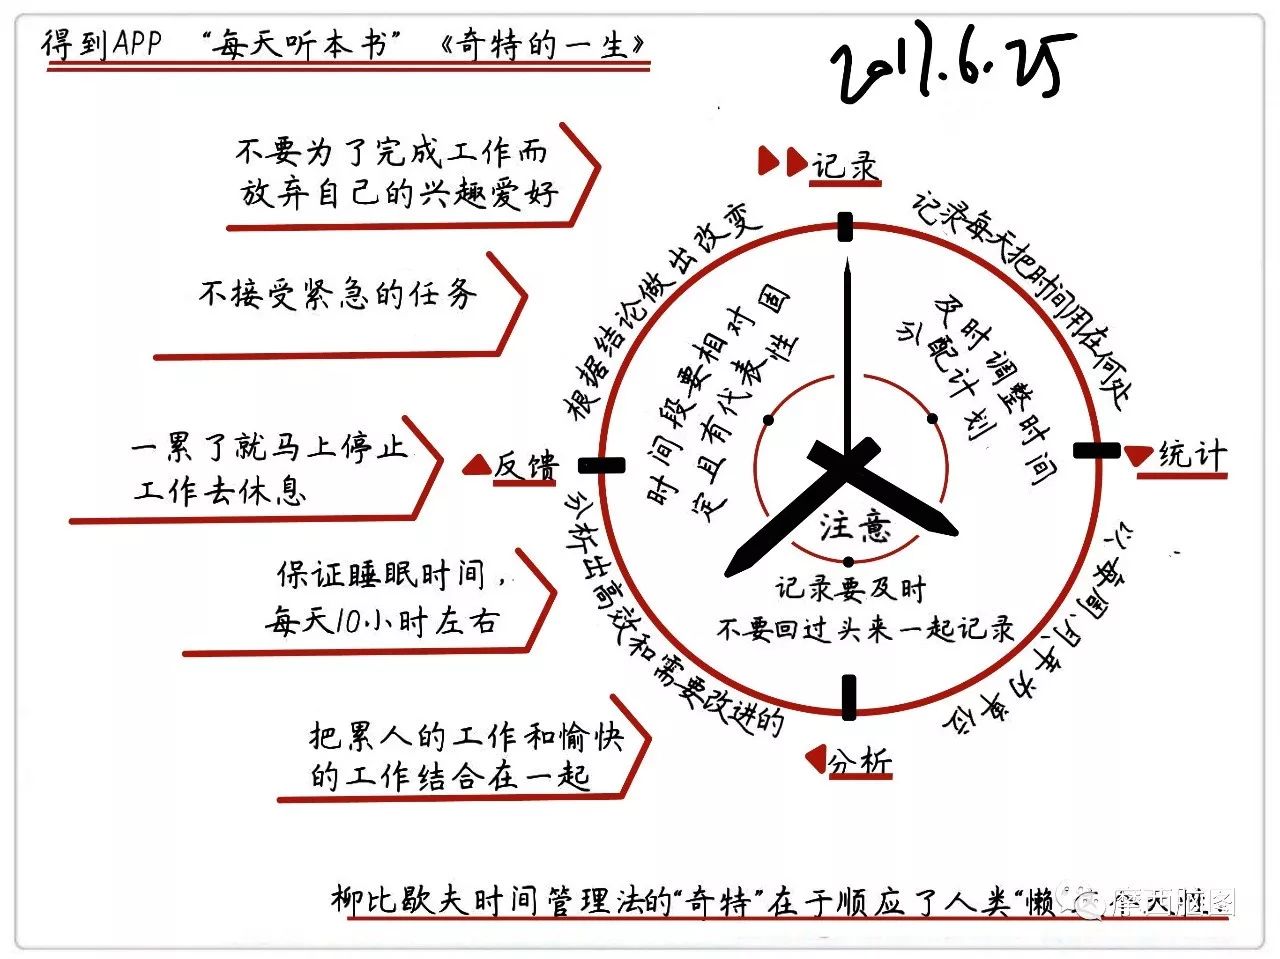 得到APP “每天听本书” 《奇特的一生》
2017.6.25
不要为了完成工作而
放弃自己的兴趣爱好
不接受紧急的任务
一累了就马上停止
工作去休息
保证睡眠时间，
每天10小时左右
把累人的工作和愉快
的工作结合在一起
记录
记录每天把时间用在何处
统计
以每周、月、年为单位
分析
分析出高效和需要改进的
反馈
根据结论做出改变
及时调整时间
分配计划
时间段要相对固
定且有代表性
注意
记录要及时
不要回过头来一起记录
柳比歇夫时间管理法的“奇特”在于顺应了人类“懒
摩西脑图